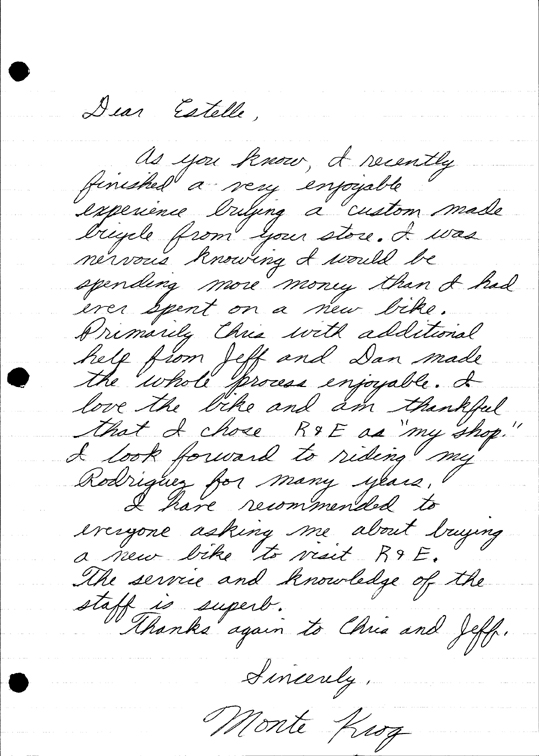 Dear Estelle,
As you know, I recently
finished a very enjoyable
experience buying a custom made
bicycle from your store. I was
nervous knowing I would be
spending more money than I had
ever spent on a new bike.
Primarily Chris with additional
help from Jeff and Dan made
the whole process enjoyable. I
love the bike and am thankful
that I chose R&E as "my shop."
I look forward to riding my
Rodriguez for many years.
I have recommended to
everyone asking me about buying
a new bike to visit R&E.
The service and knowledge of the
staff is superb.
Thanks again to Chris and Jeff.
Sincerely,
Monte Krog